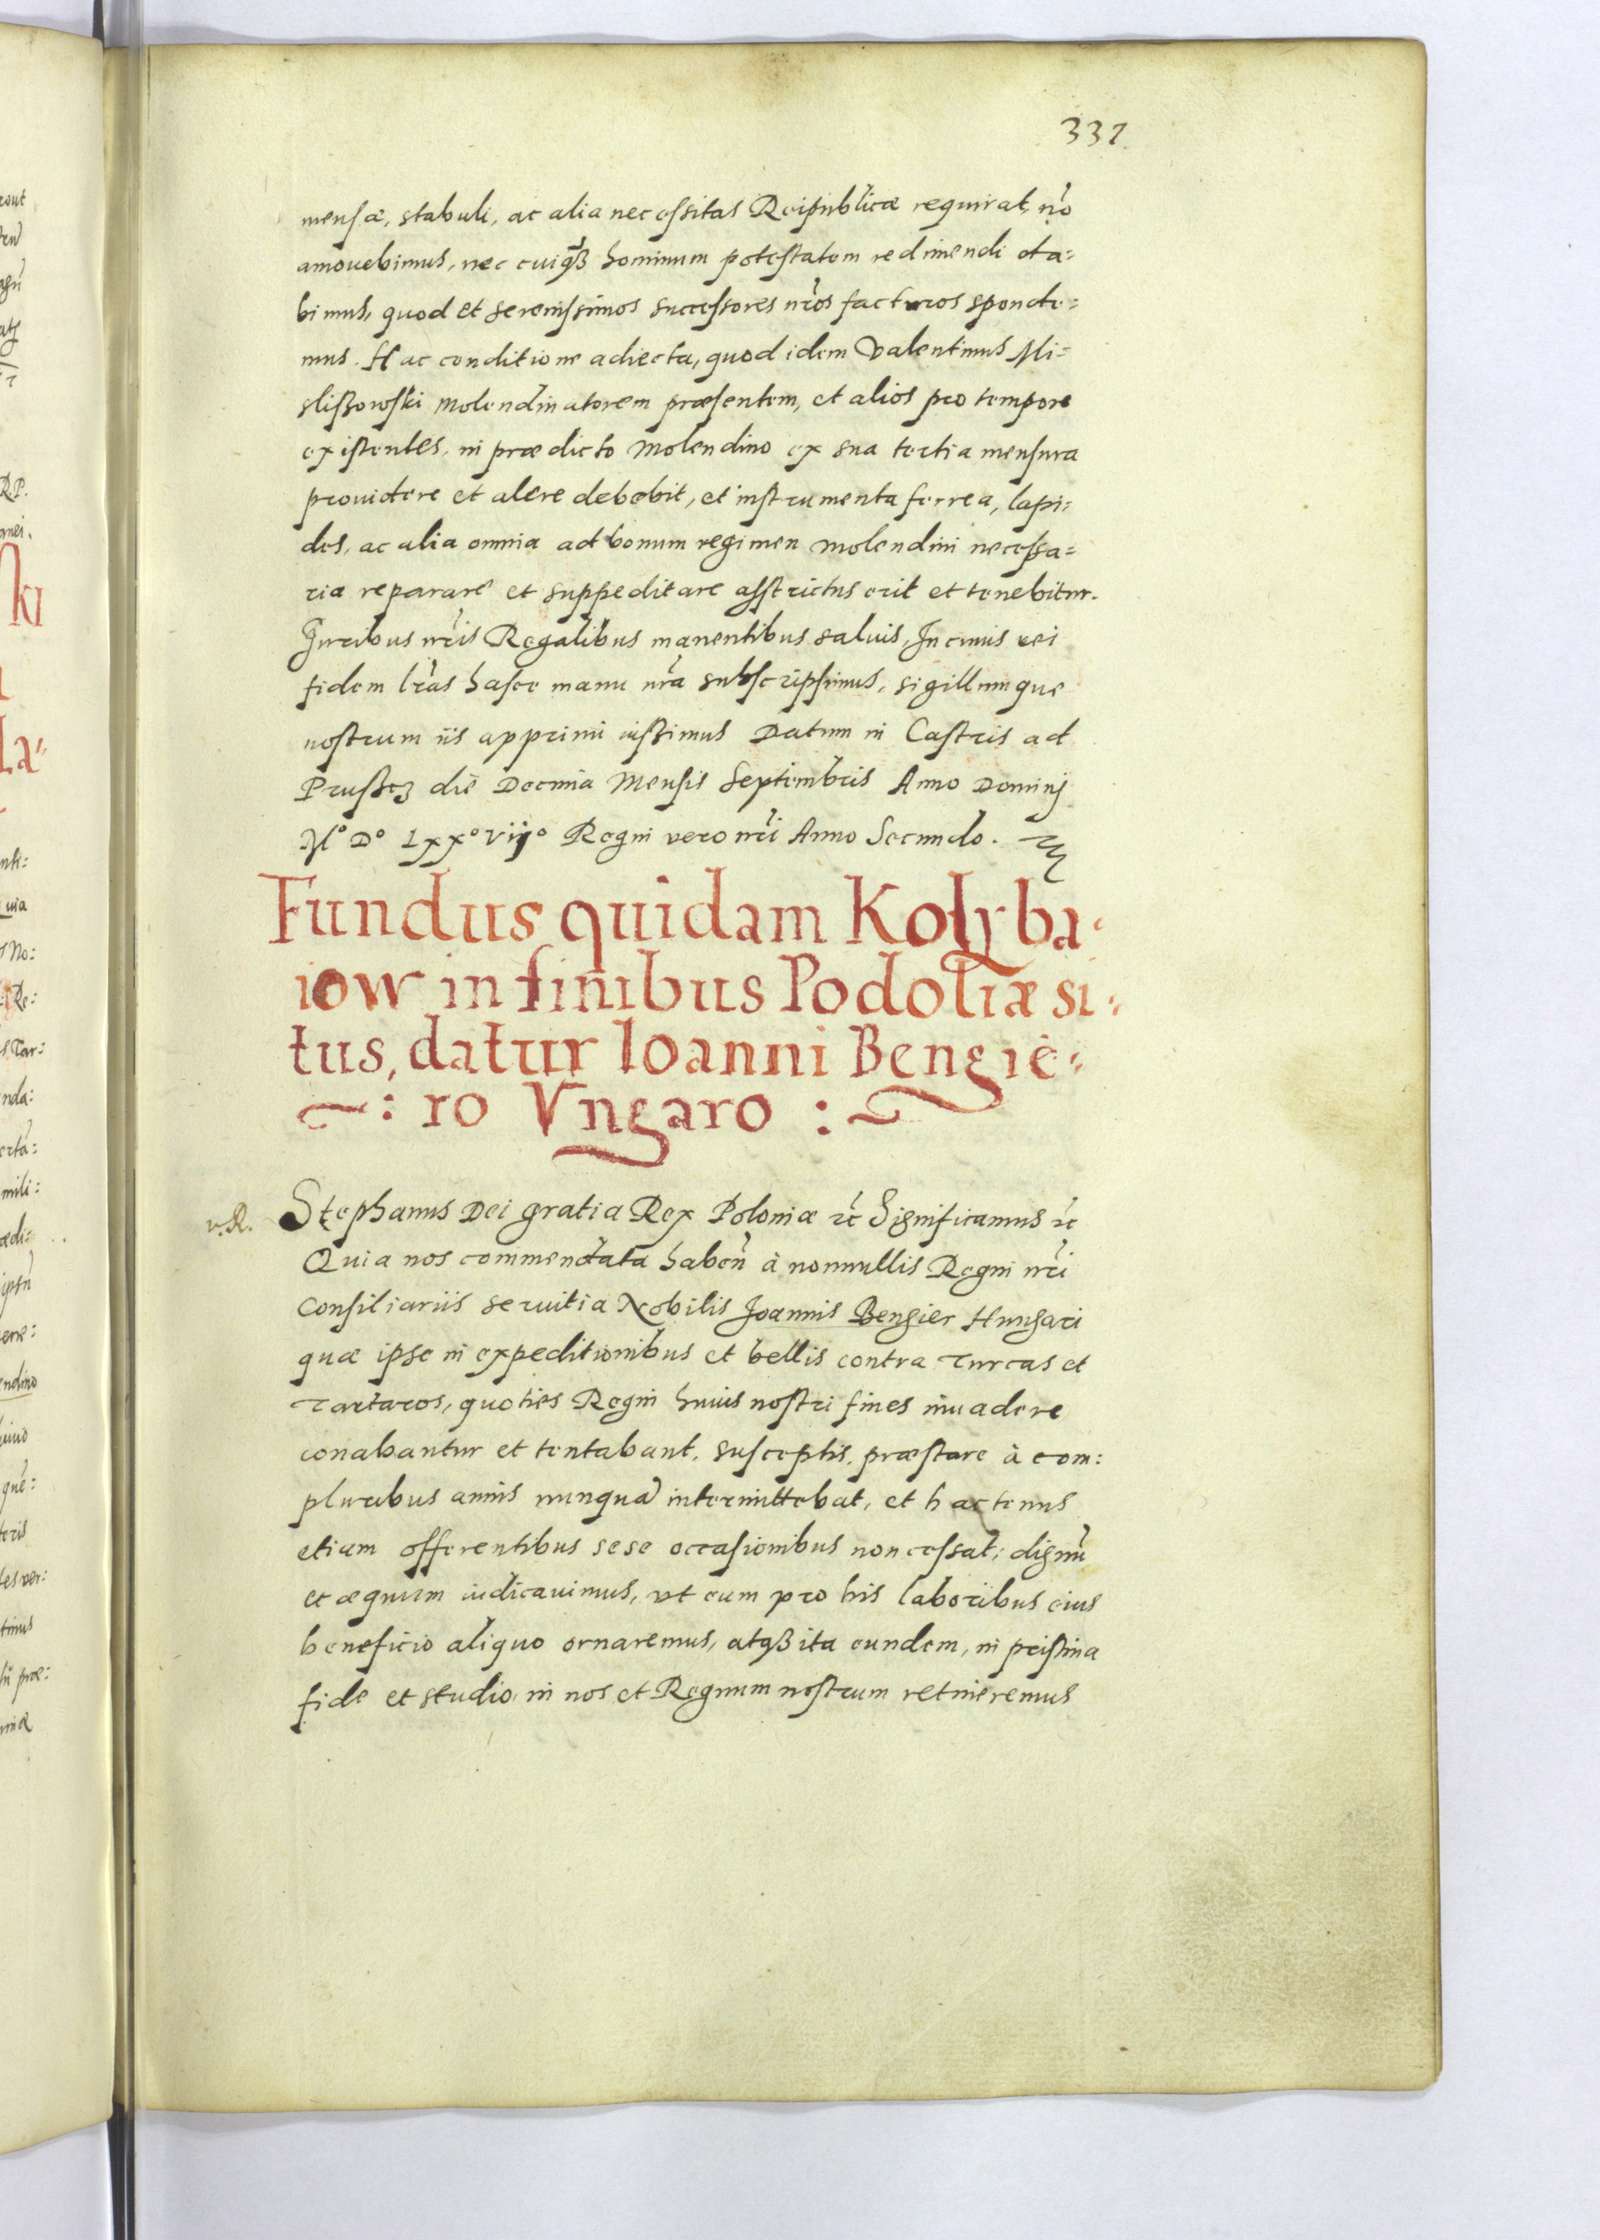 337
mensæ, stabuli, ac alia necessitas Reipublicæ requirat, nõ
amouebimus, nec cuiqß hominum potestatem redimendi da=
bimus, quod et serenissimos successores nr̃os facturos sponde=
mus. Hac conditione adiecta, quod idem Valentinus Mi=
slißowski Molendinatorem præsentem, et alios pro tempore
existentes, in prædicto Molendino ex sua tertia mensura
prouidere et alere debebit, et instrumenta ferrea, lapi=
des, ac alia omnia ad bonum regimen Molendini necessa=
ria reparare et suppeditare asstrictus erit et tenebitur.
Juribus nr̃is Regalibus manentibus saluis, In cuius rei
fidem lr̃as hasce manu nr̃a subscripsimus, sigillumque
nostrum iis apprimi iussimus Datum in Castris ad
Prußcz die Decima Mensis Septembris Anno Dominj
Mº Dº Lxxº viijº Regni vero nr̃i Anno Secundo.
Fundus quidam Kolyba=
iow in finibus Podoliæ si=
tus, datur Ioanni Bengie=
: ro Vngaro :
v.R. Stephanus Dei gratia Rex Poloniæ etc̃ Significamus etc̃
Quia nos commendata habeñ à nonnullis Regni nr̃i
Consiliariis seruitia Nobilis Joannis Bengier Hungari
quæ ipse in expeditionibus et bellis contra Turcas et
Tartaros, quoties Regni huius nostri fines inuadere
conabantur et tentabant, susceptis, præstare à com:
pluribus annis nunquã intermittebat, et hactenus
etiam offerentibus sese occasionibus non cessat; dignũ
et æquum iudicauimus, vt eum pro his laboribus eius
beneficio aliquo ornaremus, atqß ita eundem, in pristina
fide et studio in nos et Regnum nostrum retineremus